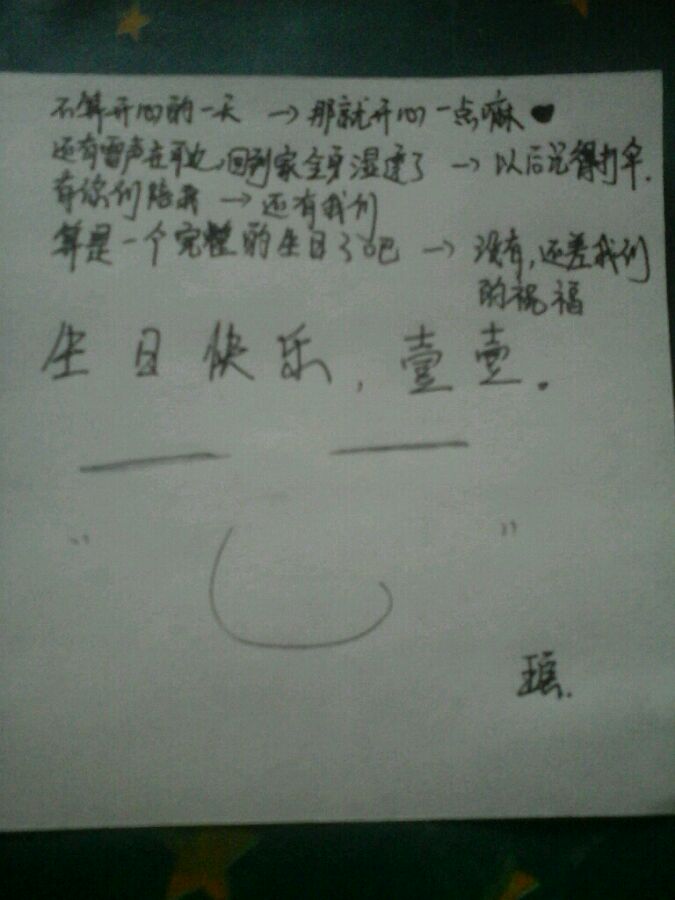 不算开心的一天 → 那就开心一点嘛♥
还有雷声在耳边,回到家全身湿透了 → 以后记得打伞.
有你们陪我 → 还有我们
算是一个完整的生日了吧 → 没有,还差我们
的祝福
生日快乐,壹壹。
瑶.